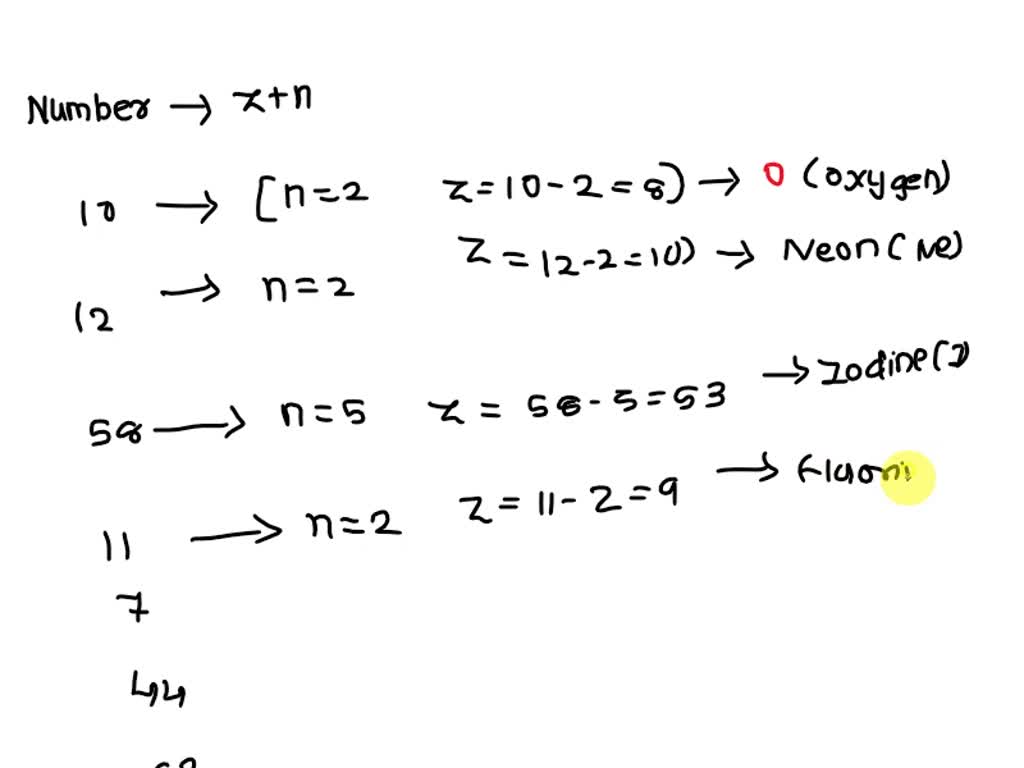 Number → z+n
10 → [n=2 z=10-2=8) → O (oxygen)
12 → n=2 z=12-2=10) → Neon (Ne)
58 → n=5 z = 58-5=53 → Iodine (I)
11 → n=2 z=11-2=9 → Fluori
7
44